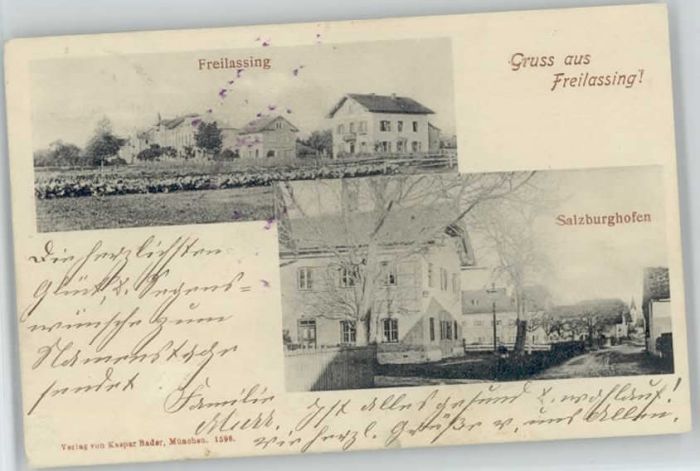 Freilassing
Gruss aus
Freilassing!
Salzburghofen
Die herzlichsten
Glück- & Segens=
wünsche zum
Namenstage
sendet
Familie
Ist alles gesund & wohlauf!
wie herzl. Grüße v. uns Allen.
Verlag von Kaspar Bader, München. 1598.